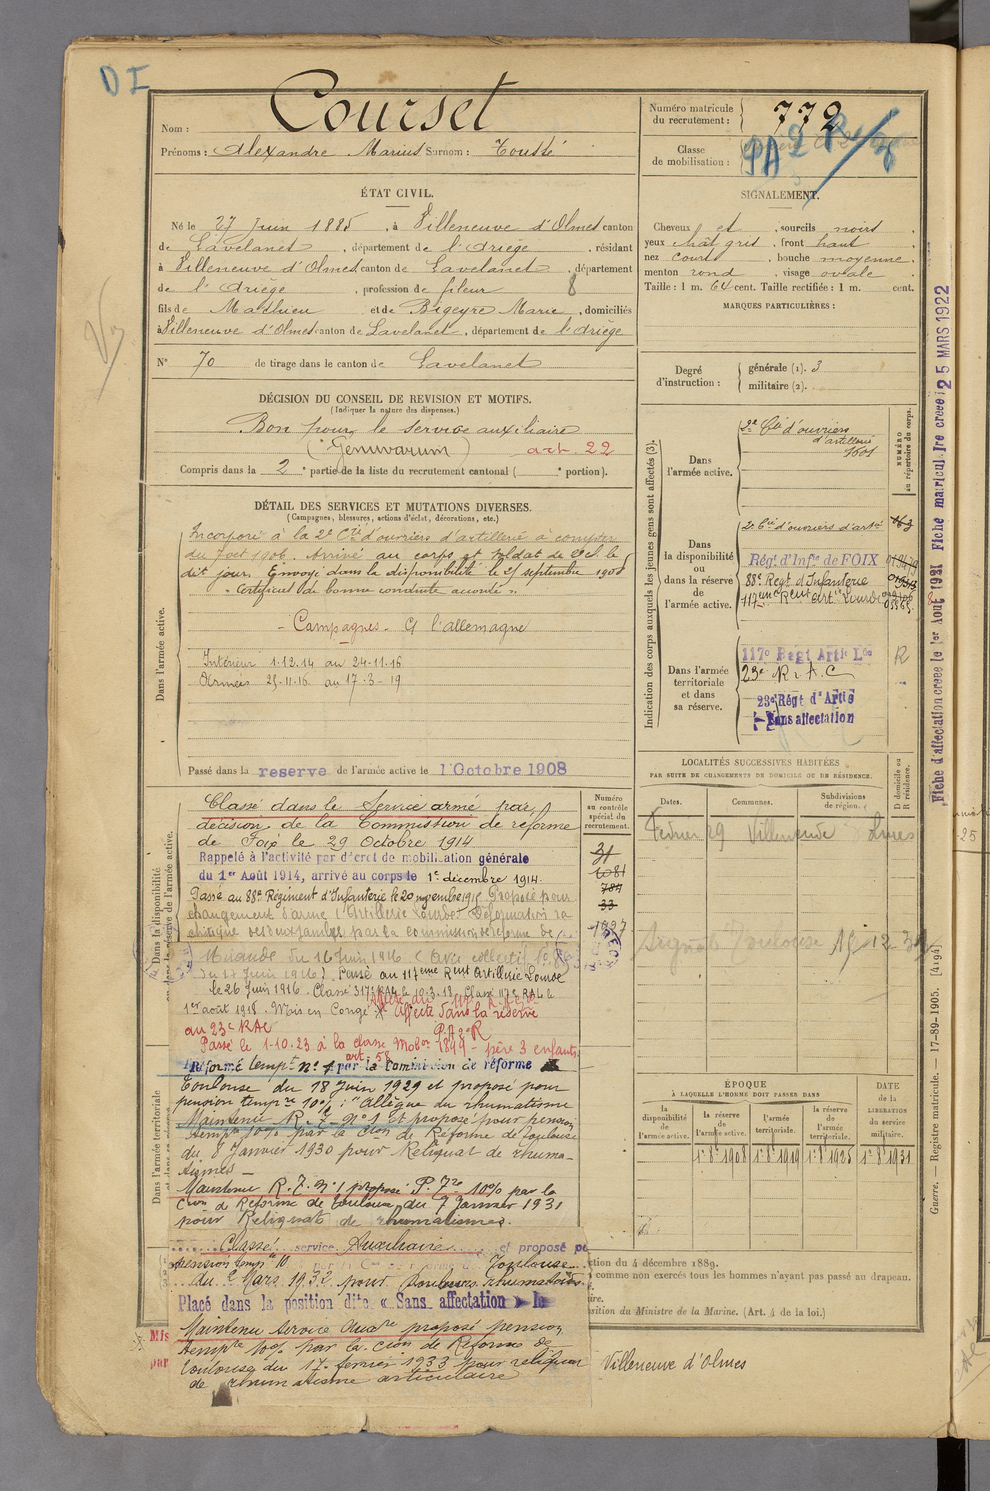 D I
Nom : Courset
Prénoms : Alexandre Marius Surnom : Toussé
Numéro matricule du recrutement : 772
Classe de mobilisation :
ÉTAT CIVIL.
Né le 27 Juin 1885, à Villeneuve d'Olmes canton
de Lavelanet, département de l'Ariège, résidant
à Villeneuve d'Olmes canton de Lavelanet, département
de l'Ariège, profession de fileur 8
fils de Mathieu et de Bigeyre Marie, domiciliés
à Villeneuve d'Olmes canton de Lavelanet, département de l'Ariège
N° 70 de tirage dans le canton de Lavelanet
SIGNALEMENT.
Cheveux et, sourcils noirs,
yeux chât gris, front haut,
nez court, bouche moyenne,
menton rond, visage ovale.
Taille : 1 m. 64 cent. Taille rectifiée : 1 m. cent.
MARQUES PARTICULIÈRES :
Degré d'instruction : générale (1). 3
militaire (2).
DÉCISION DU CONSEIL DE REVISION ET MOTIFS.
(Indiquer la nature des dispenses.)
Bon pour le service auxiliaire
(Genuvarum) art. 22
Compris dans la 2e partie de la liste du recrutement cantonal ( e portion).
DÉTAIL DES SERVICES ET MUTATIONS DIVERSES.
(Campagnes, blessures, actions d'éclat, décorations, etc.)
Dans l'armée active.
Incorporé à la 2e Cie d'ouvriers d'artillerie à compter
du 7 oct 1906. Arrivé au corps et soldat de 2e cl. le
dit jour. Envoyé dans la disponibilité le 25 septembre 1908
"Certificat de bonne conduite accordé".
- Campagnes - C/ l'allemagne
Intérieur 1-12-14 au 24-11-16
Armées 25-11-16 au 17-3-19
Passé dans la reserve de l'armée active le 1 Octobre 1908
Indication des corps auxquels les jeunes gens sont affectés (3).
NUMÉRO au répertoire du corps.
Dans l'armée active.
2e Cie d'ouvriers
d'artillerie
1601
Dans la disponibilité ou dans la réserve de l'armée active.
2e Cie d'ouvriers d'artie
Régt d'Infie de FOIX
88e Régt d'Infanterie
117eme Rgent Art Lourde
Dans l'armée territoriale et dans sa réserve.
117e Régt Artie Lde R
23e R. A. C
23e Régt d'Artie
Sans affectation
Fiche d'affectation creee le 1er Aout 1921 Fiche matricule creee le 25 MARS 1922
LOCALITÉS SUCCESSIVES HABITÉES
PAR SUITE DE CHANGEMENTS DE DOMICILE OU DE RÉSIDENCE.
Dates. Communes. Subdivisions de région. D domicile ou R résidence.
Février 29 Villeneuve
Toulouse 15-12-32
Numéro au contrôle spécial du recrutement.
31
1081
784
33
Dans la disponibilité ou dans la réserve de l'armée active.
Classé dans le Service armé par
décision de la Commission de réforme
de Foix le 29 Octobre 1914
Rappelé à l'activité par décret de mobilisation générale
du 1er Août 1914, arrivé au corps le 1er décembre 1914.
Passé au 88e Régiment d'Infanterie le 20 novembre 1915 Proposé pour
changement d'arme l'Artillerie Lourde. Déformation ra-
chitique des deux jambes par la commission de réforme de
Mirande du 16 Juin 1916 (Avis collectif
du 17 Juin 1916). Passé au 117eme Rgent Artillerie Lourde
le 26 Juin 1916. Classé 317e RAL le 10-3-18. Classé 117e RAL le
1er août 1918. Mis en Congé
Affecté dans la réserve
au 23e RAC P.A 2e R
Passé le 1-10-23 à la classe Mober 1899 - père 3 enfants
art. 58
Dans l'armée territoriale
Réformé tempre n° 1 par la Commission de réforme
Toulouse du 18 Juin 1929 et proposé pour
pension tempre 10% : "Allègue du rhumatisme
Maintenu R. T. N° 1 et proposé pour pension
tempre 10% par la Cion de Réforme de Toulouse
du 8 Janvier 1930 pour Reliquat de rhuma-
tismes -
Maintenu R. T. N° 1 proposé P. Tre 10% par la
Cion de Réforme de Toulouse du 7 Janvier 1931
pour Reliquats de rhumatismes.
Classé service Auxiliaire et proposé po
pension tempre 10 Toulouse
du 2 Mars 1932 pour Douleurs rhumatoïdes
Placé dans la position dite « Sans affectation » le
Maintenu Service Auxre proposé pension
tempre 10% par la Cion de Réforme de
Toulouse du 17 fevrier 1933 pour reliquat
de rhumatisme articulaire
Mis
par
ÉPOQUE
À LAQUELLE L'HOMME DOIT PASSER DANS
la disponibilité de l'armée active. la réserve de l'armée active. l'armée territoriale. la réserve de l'armée territoriale. DATE de la LIBÉRATION du service militaire.
1er 8bre 1908 1er 8bre 1919 1er 8bre 1925 1er 8bre 1931
ction du 4 décembre 1889.
comme non exercés tous les hommes n'ayant pas passé au drapeau.
ire.
sition du Ministre de la Marine. (Art. 4 de la loi.)
Villeneuve d'Olmes
Guerre. — Registre matricule. — 17-89-1905. [4194]